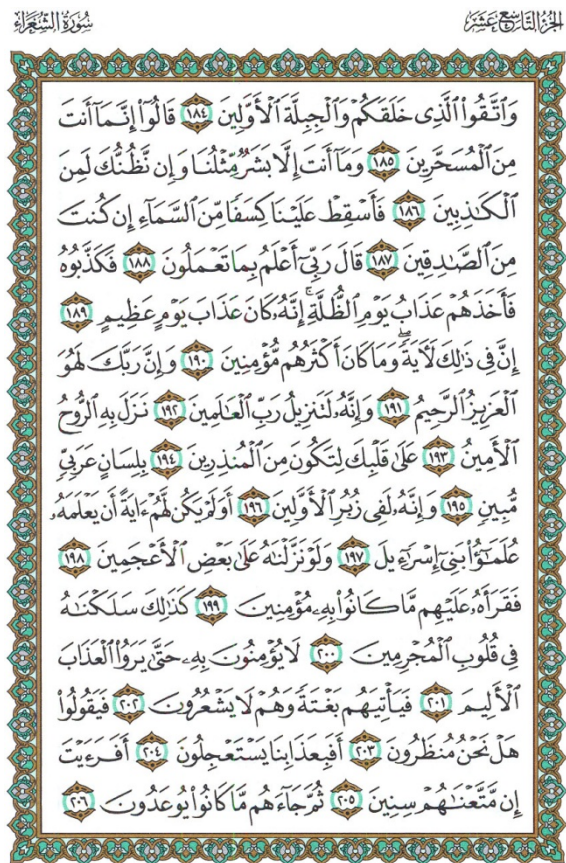 الجزء التاسع عشر
سورة الشعراء
وَٱتَّقُوا۟ ٱلَّذِى خَلَقَكُمْ وَٱلْجِبِلَّةَ ٱلْأَوَّلِينَ ١٨٤ قَالُوٓا۟ إِنَّمَآ أَنتَ
مِنَ ٱلْمُسَحَّرِينَ ١٨٥ وَمَآ أَنتَ إِلَّا بَشَرٌ مِّثْلُنَا وَإِن نَّظُنُّكَ لَمِنَ
ٱلْكَـٰذِبِينَ ١٨٦ فَأَسْقِطْ عَلَيْنَا كِسَفًا مِّنَ ٱلسَّمَآءِ إِن كُنتَ
مِنَ ٱلصَّـٰدِقِينَ ١٨٧ قَالَ رَبِّىٓ أَعْلَمُ بِمَا تَعْمَلُونَ ١٨٨ فَكَذَّبُوهُ
فَأَخَذَهُمْ عَذَابُ يَوْمِ ٱلظُّلَّةِ ۚ إِنَّهُۥ كَانَ عَذَابَ يَوْمٍ عَظِيمٍ ١٨٩
إِنَّ فِى ذَٰلِكَ لَـَٔايَةً ۖ وَمَا كَانَ أَكْثَرُهُم مُّؤْمِنِينَ ١٩٠ وَإِنَّ رَبَّكَ لَهُوَ
ٱلْعَزِيزُ ٱلرَّحِيمُ ١٩١ وَإِنَّهُۥ لَتَنزِيلُ رَبِّ ٱلْعَـٰلَمِينَ ١٩٢ نَزَلَ بِهِ ٱلرُّوحُ
ٱلْأَمِينُ ١٩٣ عَلَىٰ قَلْبِكَ لِتَكُونَ مِنَ ٱلْمُنذِرِينَ ١٩٤ بِلِسَانٍ عَرَبِىٍّ
مُّبِينٍ ١٩٥ وَإِنَّهُۥ لَفِى زُبُرِ ٱلْأَوَّلِينَ ١٩٦ أَوَلَمْ يَكُن لَّهُمْ ءَايَةً أَن يَعْلَمَهُۥ
عُلَمَـٰٓؤُا۟ بَنِىٓ إِسْرَٰٓءِيلَ ١٩٧ وَلَوْ نَزَّلْنَـٰهُ عَلَىٰ بَعْضِ ٱلْأَعْجَمِينَ ١٩٨
فَقَرَأَهُۥ عَلَيْهِم مَّا كَانُوا۟ بِهِۦ مُؤْمِنِينَ ١٩٩ كَذَٰلِكَ سَلَكْنَـٰهُ
فِى قُلُوبِ ٱلْمُجْرِمِينَ ٢٠٠ لَا يُؤْمِنُونَ بِهِۦ حَتَّىٰ يَرَوُا۟ ٱلْعَذَابَ
ٱلْأَلِيمَ ٢٠١ فَيَأْتِيَهُم بَغْتَةً وَهُمْ لَا يَشْعُرُونَ ٢٠٢ فَيَقُولُوا۟
هَلْ نَحْنُ مُنظَرُونَ ٢٠٣ أَفَبِعَذَابِنَا يَسْتَعْجِلُونَ ٢٠٤ أَفَرَءَيْتَ
إِن مَّتَّعْنَـٰهُمْ سِنِينَ ٢٠٥ ثُمَّ جَآءَهُم مَّا كَانُوا۟ يُوعَدُونَ ٢٠٦